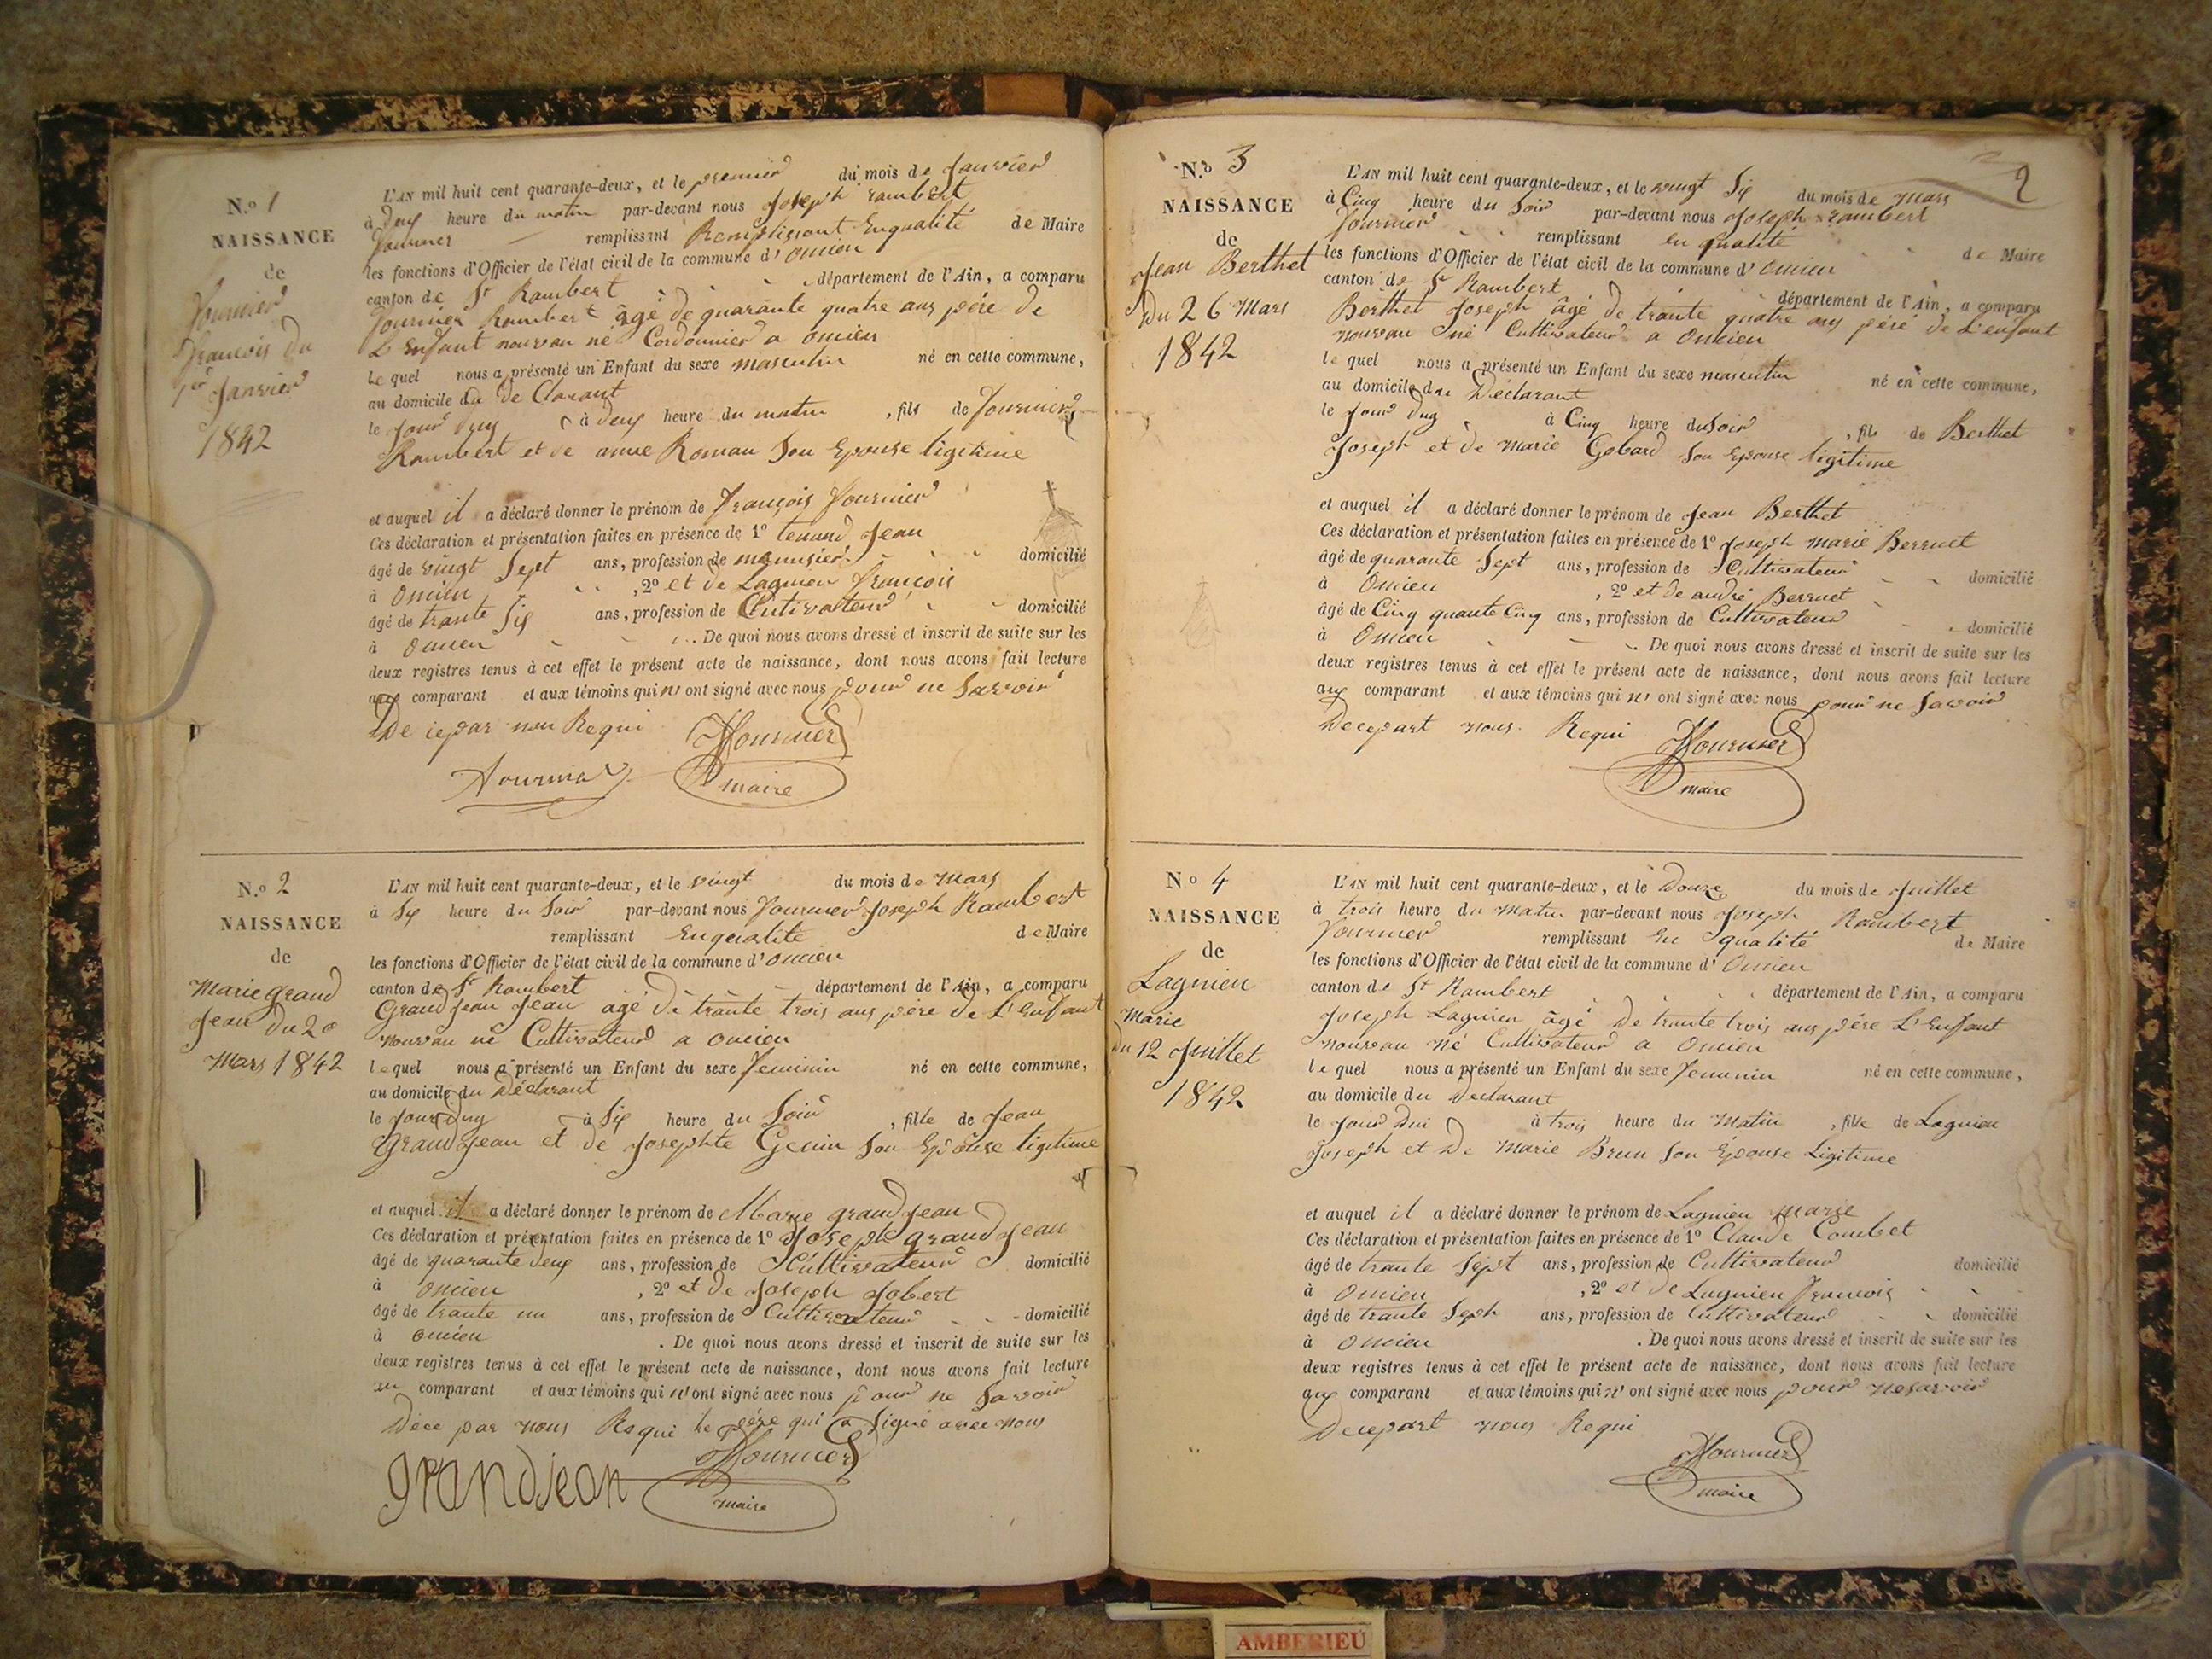 N.o 1
NAISSANCE
de
Fournier
françois du
1er Janvier
1842
L'AN mil huit cent quarante-deux, et le premier du mois de Janvier
à deux heure du matin par-devant nous Joseph rambert
fournier remplissant Remplissant Enqualité de Maire
les fonctions d'Officier de l'état civil de la commune d'oncieu
canton de St Rambert département de l'Ain, a comparu
fournier Rambert âgé de quarante quatre ans père de
L'Enfant nouvau né Cordonnier a oncieu
le quel nous a présenté un Enfant du sexe masculin né en cette commune,
au domicile du de Clarant
le Jour duy à deux heure du matin, fils de fournier
Rambert et de anne Roman Son Epouse ligitime
et auquel il a déclaré donner le prénom de françois fournier
Ces déclaration et présentation faites en présence de 1o tenand Jean
âgé de vingt Sept ans, profession de menusier domicilié
à Oncieu, 2o et de Lagnieu françois
âgé de trante Six ans, profession de Cultivateur domicilié
à Oncieu. De quoi nous avons dressé et inscrit de suite sur les
deux registres tenus à cet effet le présent acte de naissance, dont nous avons fait lecture
aux comparant et aux témoins qui n'ont signé avec nous pour ne Savoir
De ce par nou Requi JFournier
fournier maire
N.o 2
NAISSANCE
de
Marie grand
Jean du 20
Mars 1842
L'AN mil huit cent quarante-deux, et le vingt du mois de Mars
à Six heure du Soir par-devant nous fournier Joseph Rambert
remplissant Enqualité de Maire
les fonctions d'Officier de l'état civil de la commune d'oncieu
canton de St Rambert département de l'Ain, a comparu
Grand Jean Jean âgé de trante trois ans père de L'Enfant
nouvau né Cultivateur a oncieu
lequel nous a présenté un Enfant du sexe feminin né en cette commune,
au domicile du Déclarant
le Jour duy à Six heure du Soir, fille de Jean
Grand Jean et de Josephte Genin Son Epouse ligitime
et auquel il a déclaré donner le prénom de Marie grand Jean
Ces déclaration et présentation faites en présence de 1o Joseph grand Jean
âgé de quarante deux ans, profession de Cultivateur domicilié
à oncieu, 2o et de Joseph Jobert
âgé de trante un ans, profession de Cultivateur domicilié
à oncieu. De quoi nous avons dressé et inscrit de suite sur les
deux registres tenus à cet effet le présent acte de naissance, dont nous avons fait lecture
au comparant et aux témoins qui n'ont signé avec nous pour ne Savoir
Dece par nous Requi le père qui a Signé avec nous
grandjean JFournier
maire
2
N.o 3
NAISSANCE
de
Jean Berthet
Du 26 Mars
1842
L'AN mil huit cent quarante-deux, et le vingt Six du mois de Mars
à Cinq heure du Soir par-devant nous Joseph rambert
fournier remplissant en qualité de Maire
les fonctions d'Officier de l'état civil de la commune d'oncieu
canton de St Rambert département de l'Ain, a comparu
Berthet Joseph âgé De trante quatre ans père de L'enfant
nouvau né Cultivateur a Oncieu
le quel nous a présenté un Enfant du sexe masculin né en cette commune,
au domicile du Déclarant
le Jour duy à Cinq heure du Soir, fils de Berthet
Joseph et de Marie Gobard Son Epouse ligitime
et auquel il a déclaré donner le prénom de Jean Berthet
Ces déclaration et présentation faites en présence de 1o Joseph Marie Berruet
âgé de quarante Sept ans, profession de Cultivateur domicilié
à Oncieu, 2o et de andré Berruet
âgé de Cinq quante Cinq ans, profession de Cultivateur domicilié
à Oncieu. De quoi nous avons dressé et inscrit de suite sur les
deux registres tenus à cet effet le présent acte de naissance, dont nous avons fait lecture
aux comparant et aux témoins qui n'ont signé avec nous pour ne Savoir
Decepart nous Requi JFournier
maire
No 4
NAISSANCE
de
Lagnieu
Marie
du 12 Juillet
1842
L'AN mil huit cent quarante-deux, et le Douze du mois de Juillet
à trois heure du Matin par-devant nous Joseph Rambert
fournier remplissant En qualité de Maire
les fonctions d'Officier de l'état civil de la commune d'Oncieu
canton de St Rambert département de l'Ain, a comparu
Joseph Lagnieu âgé De trante trois ans père L'Enfant
nouvau né Cultivateur a Oncieu
le quel nous a présenté un Enfant du sexe feminin né en cette commune,
au domicile du Declarant
le Jour dui à trois heure du Matin, fille de Lagnieu
Joseph et De Marie Brun Son Epouse Ligitime
et auquel il a déclaré donner le prénom de Lagnieu Marie
Ces déclaration et présentation faites en présence de 1o Claude Combet
âgé de trante Sept ans, profession de Cultivateur domicilié
à Oncieu, 2o et de Lagnieu françois
âgé de trante Seph ans, profession de Cultivateur domicilié
à Oncieu. De quoi nous avons dressé et inscrit de suite sur les
deux registres tenus à cet effet le présent acte de naissance, dont nous avons fait lecture
aux comparant et aux témoins qui n'ont signé avec nous pour nesavoir
Decepart nous Requi
JFournier
maire
AMBERIEU